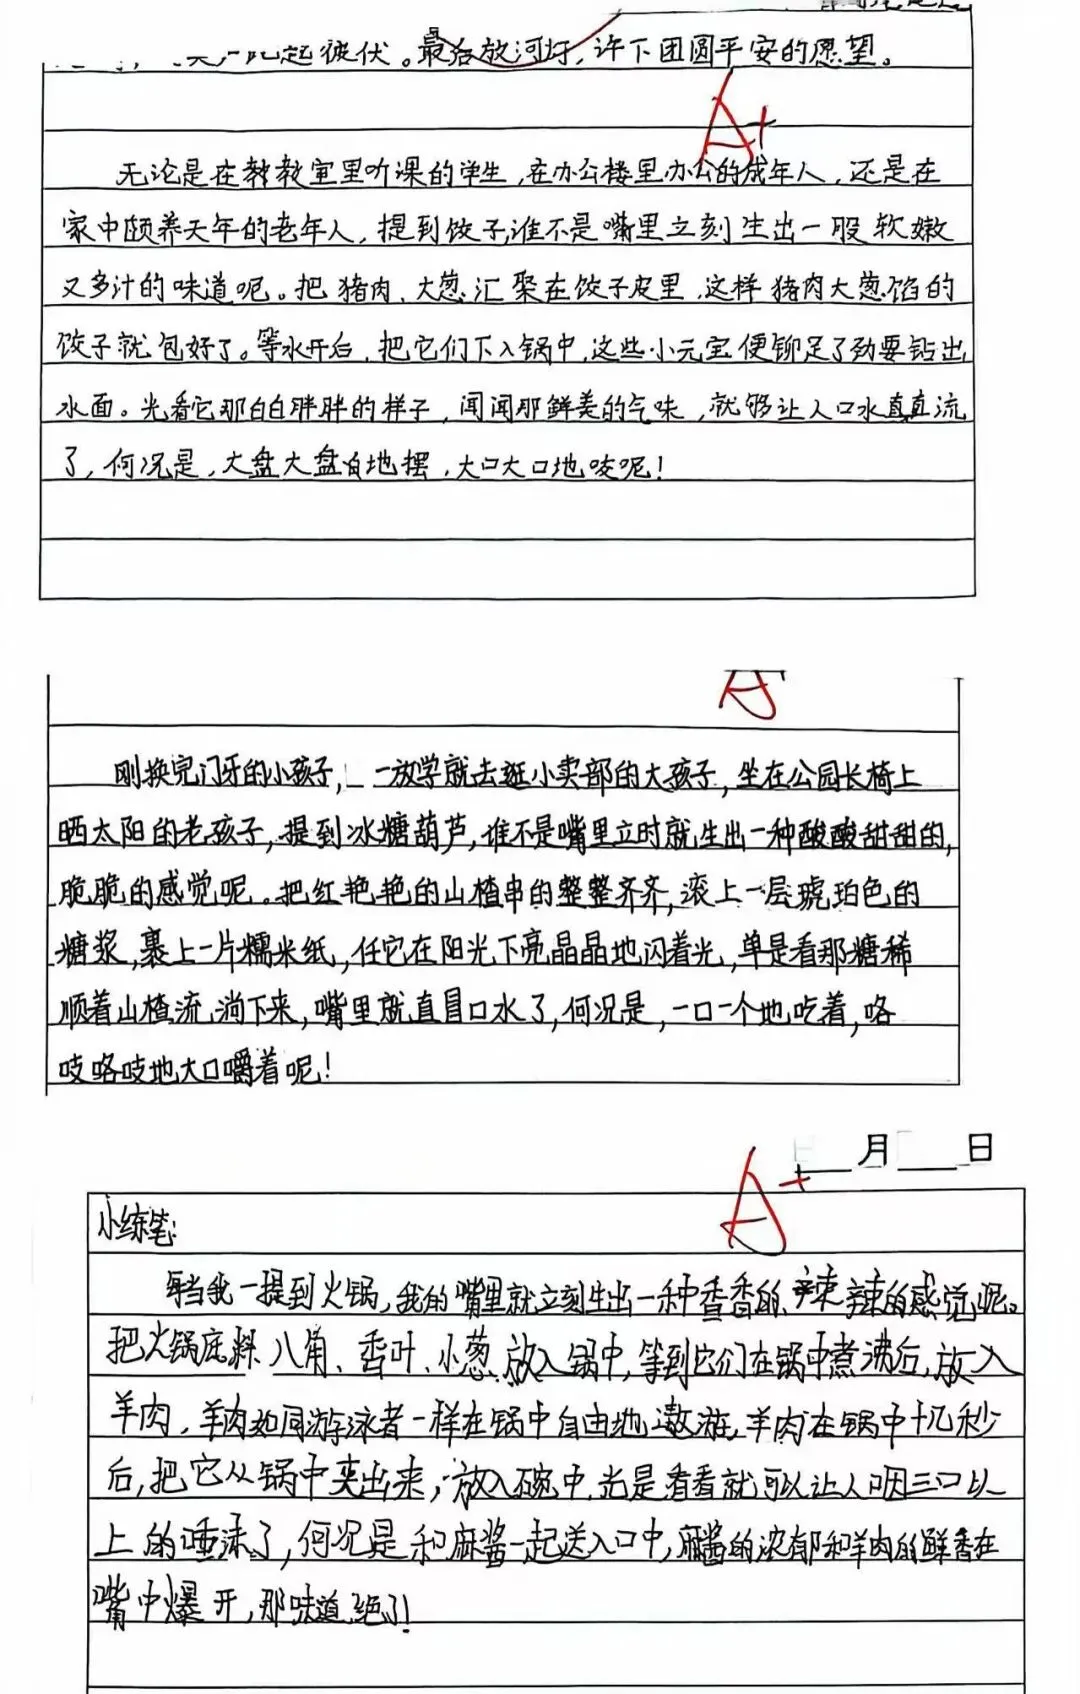 起彼伏。最后放河灯,许下团圆平安的愿望。
A+
无论是在教教室里听课的学生,在办公楼里办公的成年人,还是在
家中颐养天年的老年人,提到饺子,谁不是嘴里立刻生出一股软嫩
又多汁的味道呢。把猪肉、大葱汇聚在饺子皮里,这样猪肉大葱馅的
饺子就包好了。等水开后,把它们下入锅中,这些小元宝便铆足了劲要钻出
水面。光看它那白白胖胖的样子,闻闻那鲜美的气味,就够让人口水直直流
了,何况是,大盘大盘地摆,大口大口地吱呢!
A
刚换完门牙的小孩子,一放学就去逛小卖部的大孩子,坐在公园长椅上
晒太阳的老孩子,提到冰糖葫芦,谁不是嘴里立时就生出一种酸酸甜甜的,
脆脆的感觉呢。把红艳艳的山楂串的整整齐齐,滚上一层琥珀色的
糖浆,裹上一片糯米纸,任它在阳光下亮晶晶地闪着光,单是看那糖稀
顺着山楂流淌下来,嘴里就直冒口水了,何况是,一口一个地吃着,咯
吱咯吱地大口嚼着呢!
月 日
A+
小练笔:
每当我一提到火锅,我的嘴里就立刻生出一种香香的、辣辣的感觉呢。
把火锅底料、八角、香叶、小葱放入锅中,等到它们在锅中煮沸后,放入
羊肉,羊肉如同游泳者一样在锅中自由地遨游,羊肉在锅中十几秒
后,把它从锅中夹出来,放入碗中,光是看看就可以让人咽三口以
上的唾沫了,何况是和麻酱一起送入口中,麻酱的浓郁和羊肉的鲜香在
嘴中爆开,那味道,绝了!